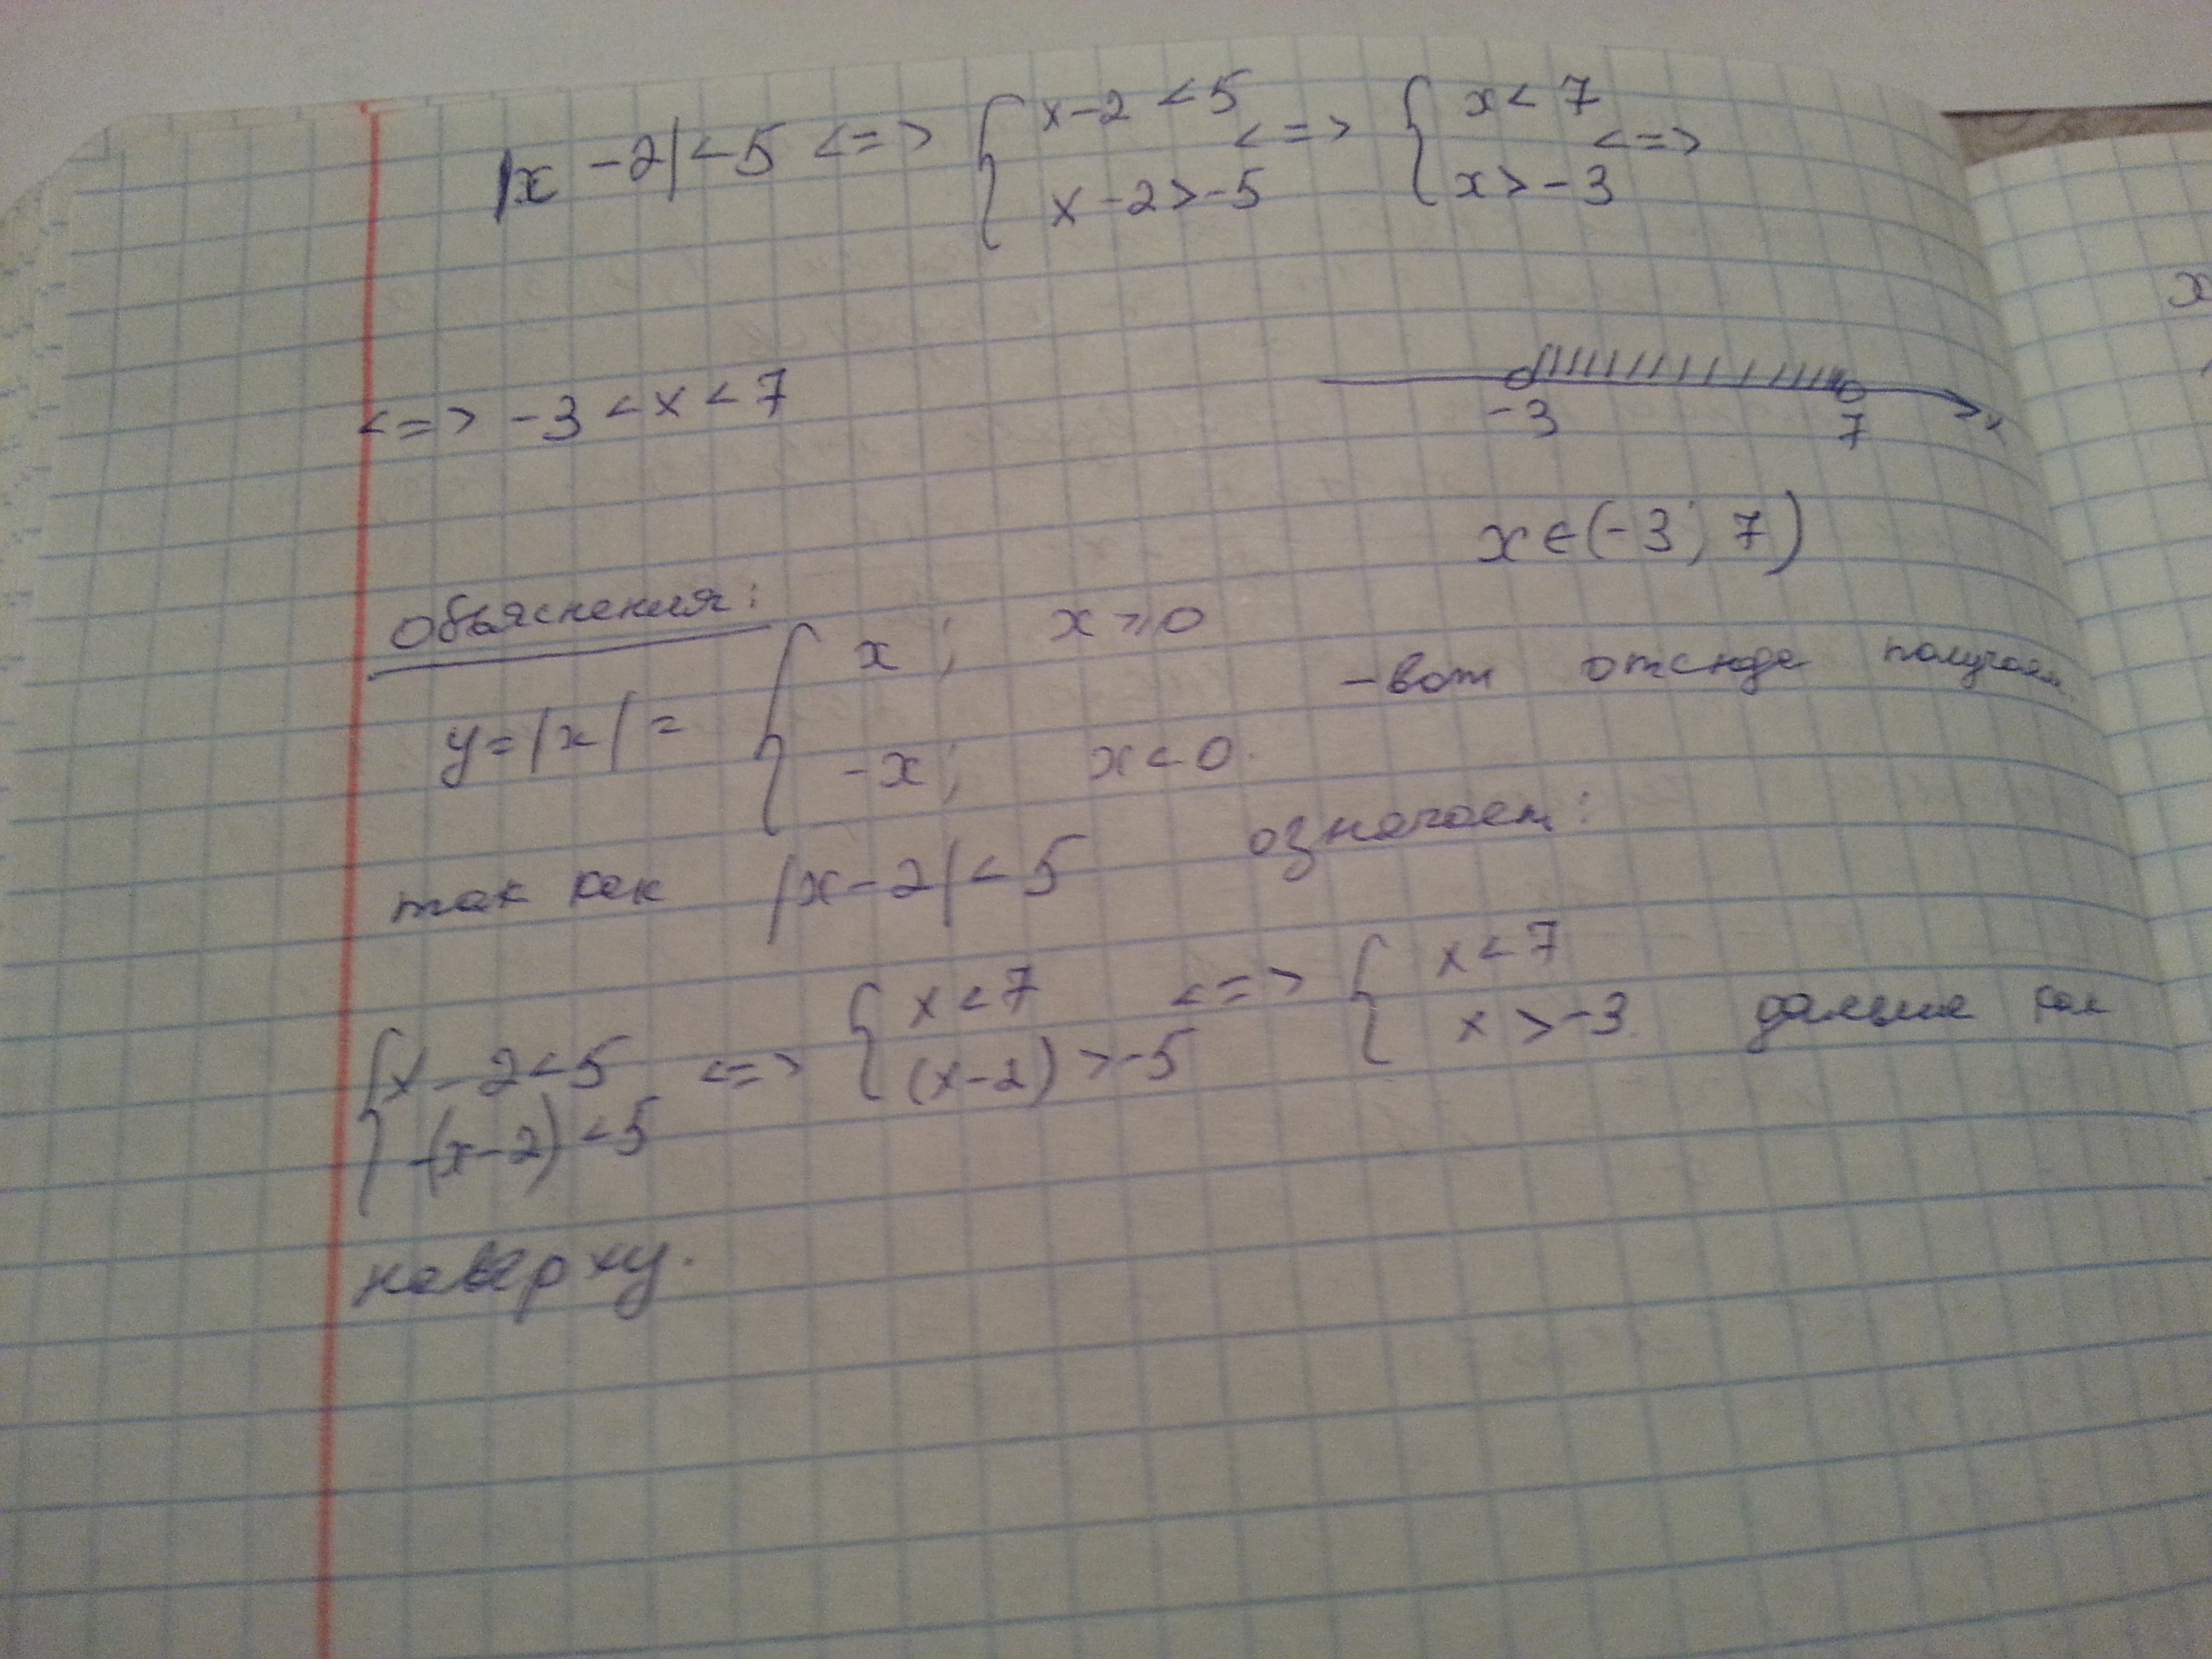 |x - 2| < 5 <=> { x - 2 < 5 <=> { x < 7 <=>
x - 2 > -5 x > -3
<=> -3 < x < 7
-3 7 x
x ∈ (-3; 7)
Объяснения:
y = |x| = { x; x ⩾ 0
-x; x < 0.
- вот отсюда получаем
так как |x - 2| < 5 означает:
{ x - 2 < 5 <=> { x < 7 <=> { x < 7
-(x - 2) < 5 (x - 2) > -5 x > -3 дальше как
наверху.
x